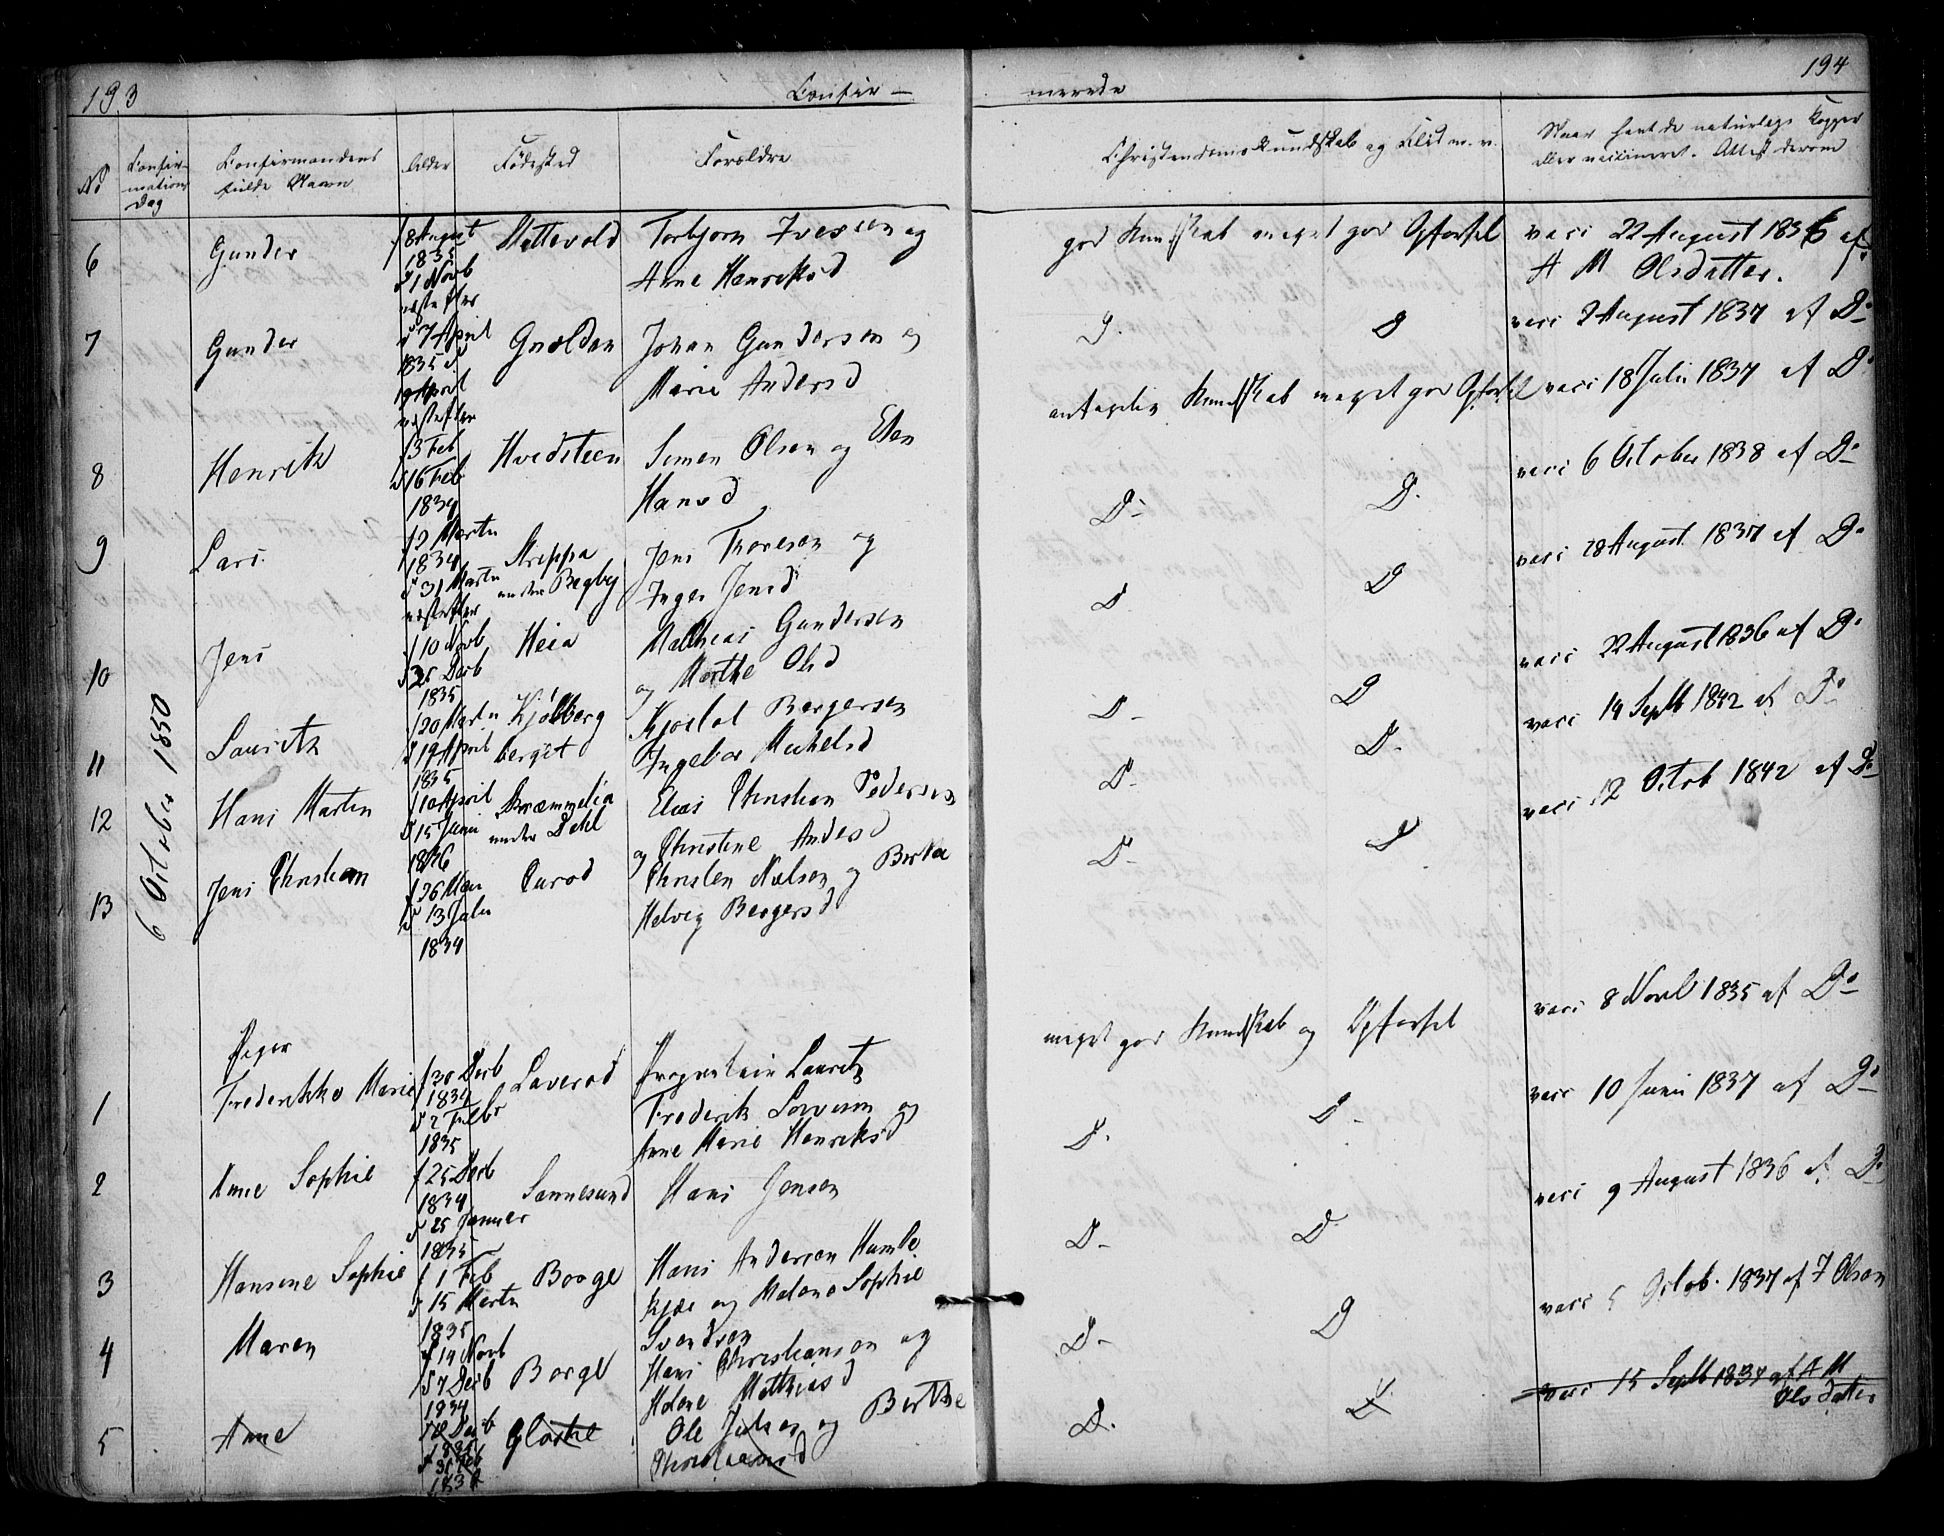 193
Confir-
No
Confir-
mations
Dag
Confirmandens
fulde Navn
Alder
Fødested
Forældre
6 October 1850
6
Gunder
f 8 August
1835
D 1 Novb
næstefter
Torbjorn Iversen og
Anne Henriksd
7
Gunder
f 7 April
1835 D
19 April
næstefter
Johan Gundersen og
Marie Andersd
8
Henrik
f 3 Feb
D 16 Feb
1834
Hvidsteen
Simen Olsen og Elen
Hansd
9
Lars
1834
D 31 Martii
næstefter
under Begby
Jens Thoresen og
Inger Jensd
10
Jens
f 10 Novb
D 25 Decb
1835
Heia
Mathias Gundersen
og Marthe Olsd
11
Lauritz
f 20 Martii
D 19 April
1835
Kjølberg
berget
Ingebor Mikelsd
12
Hans Martin
f 10 April
D 15 Juni
1836
under Dahl
Elias Christian Pedersen
og Christine Andersd
13
Jens Christian
D 13 Juli
1834
Christen Nielsen og Berta
Helvig Bergersd
Piger
1
Frederikke Marie
f 30 Decb
1834
D 2 Febr
1835
Proprietair Lauritz
Frederik Sørensen og
Anne Marie Henriksd
2
Anne Sophie
f 25 Decb
1834
D 25 Januar
1835
Sannesund
Hans Jensen
3
Hansene Sophie
f 1 Feb
D 15 Martii
1835
Borge
Hans Andersen Humle
kjær og Helene Sophie
Svendsen
4
Maren
f 14 Novb
D 7 Decb
1834
Borge
Hans Christiansen og
Helene Mathiasd
5
Anne
Ole Julsen og Berthe
Christiansd
194
merede
Christendomskundskab og Flid m. v.
Naar havt de naturlige Kopper
eller vaccineret. Attest derom
god Kundskab meget god Opførsel
vacc 22 August 1836 af
A M Olsdatter.
D.
D
vacc 2 August 1837 af Do
antagelig Kundskab meget god Opførsel
vacc 18 Juli 1837 af Do
D-
D.
vacc 6 October 1838 af Do
D
D
vacc 28 August 1837 af Do
D-
D
vacc 22 August 1836 af Do
D-
D-
vacc 14 Septb 1842 af Do
D-
D
vacc 12 Octob 1842 af Do
meget god Kundskab og Opførsel
vacc 8 Novb 1835 af Do
D.
D-
vacc 10 Juni 1837 af Do
D-
D-
vacc 9 August 1836 af Do
D-
D
vacc 5 Octob. 1837 af F Olsen
D.
D
vacc 15 Septb 1837 af A M
Olsdatter